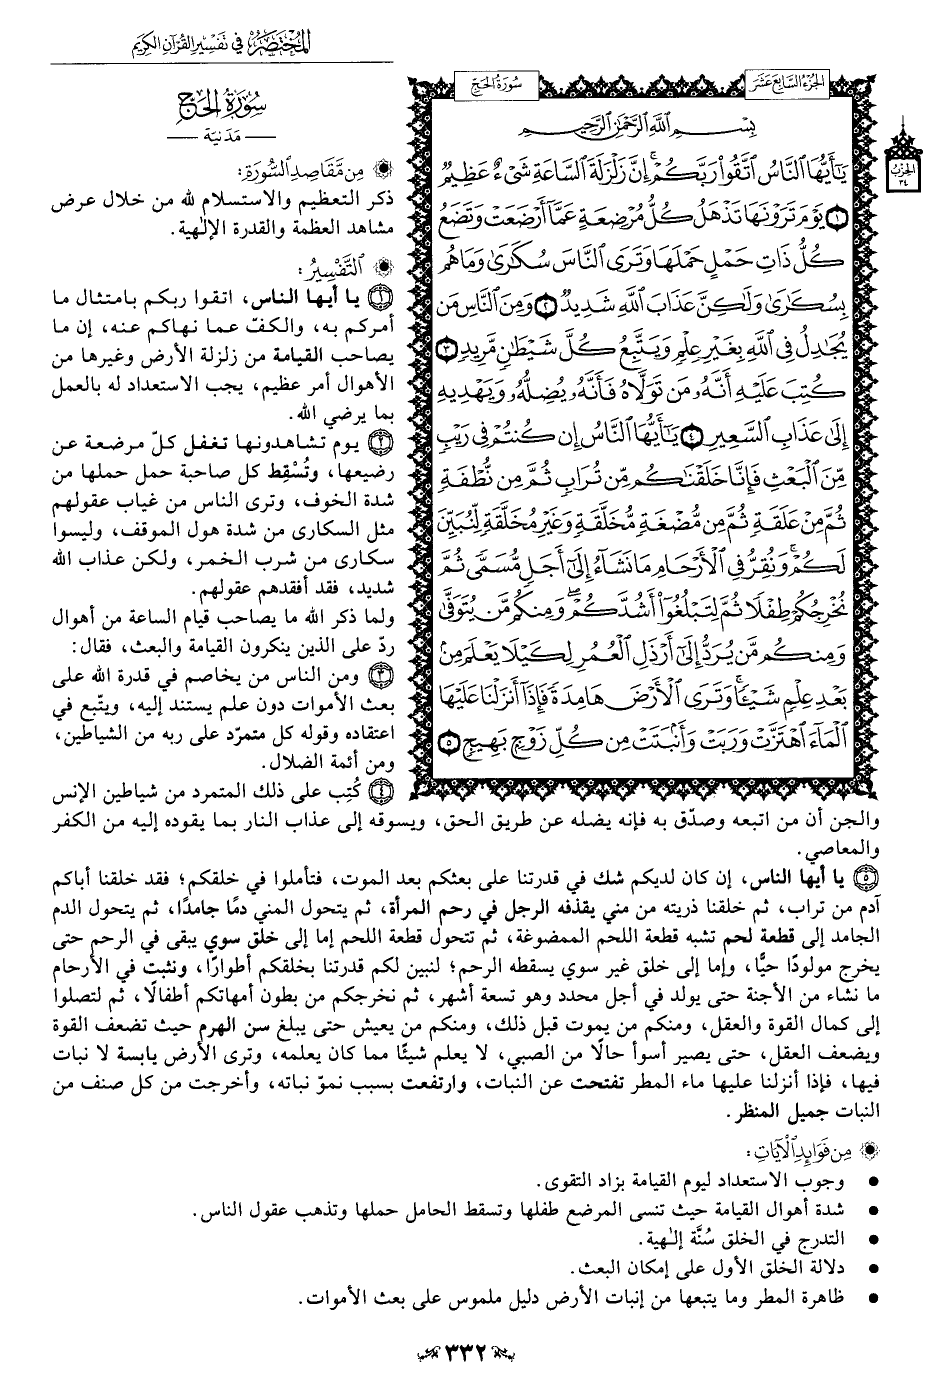 المختصر في تفسير القرآن الكريم
الجزء السابع عشر
سورة الحج
الحزب
٣٤
بِسْمِ اللَّهِ الرَّحْمَٰنِ الرَّحِيمِ
يَٰٓأَيُّهَا ٱلنَّاسُ ٱتَّقُوا۟ رَبَّكُمْ ۚ إِنَّ زَلْزَلَةَ ٱلسَّاعَةِ شَىْءٌ عَظِيمٌ
١ يَوْمَ تَرَوْنَهَا تَذْهَلُ كُلُّ مُرْضِعَةٍ عَمَّآ أَرْضَعَتْ وَتَضَعُ
كُلُّ ذَاتِ حَمْلٍ حَمْلَهَا وَتَرَى ٱلنَّاسَ سُكَٰرَىٰ وَمَا هُم
بِسُكَٰرَىٰ وَلَٰكِنَّ عَذَابَ ٱللَّهِ شَدِيدٌ ٢ وَمِنَ ٱلنَّاسِ مَن
يُجَٰدِلُ فِى ٱللَّهِ بِغَيْرِ عِلْمٍ وَيَتَّبِعُ كُلَّ شَيْطَٰنٍ مَّرِيدٍ ٣
كُتِبَ عَلَيْهِ أَنَّهُۥ مَن تَوَلَّاهُ فَأَنَّهُۥ يُضِلُّهُۥ وَيَهْدِيهِ
إِلَىٰ عَذَابِ ٱلسَّعِيرِ ٤ يَٰٓأَيُّهَا ٱلنَّاسُ إِن كُنتُمْ فِى رَيْبٍ
مِّنَ ٱلْبَعْثِ فَإِنَّا خَلَقْنَٰكُم مِّن تُرَابٍ ثُمَّ مِن نُّطْفَةٍ
ثُمَّ مِنْ عَلَقَةٍ ثُمَّ مِن مُّضْغَةٍ مُّخَلَّقَةٍ وَغَيْرِ مُخَلَّقَةٍ لِّنُبَيِّنَ
لَكُمْ ۚ وَنُقِرُّ فِى ٱلْأَرْحَامِ مَا نَشَآءُ إِلَىٰٓ أَجَلٍ مُّسَمًّى ثُمَّ
نُخْرِجُكُمْ طِفْلًا ثُمَّ لِتَبْلُغُوٓا۟ أَشُدَّكُمْ ۖ وَمِنكُم مَّن يُتَوَفَّىٰ
وَمِنكُم مَّن يُرَدُّ إِلَىٰٓ أَرْذَلِ ٱلْعُمُرِ لِكَيْلَا يَعْلَمَ مِنۢ
بَعْدِ عِلْمٍ شَيْـًٔا ۚ وَتَرَى ٱلْأَرْضَ هَامِدَةً فَإِذَآ أَنزَلْنَا عَلَيْهَا
ٱلْمَآءَ ٱهْتَزَّتْ وَرَبَتْ وَأَنۢبَتَتْ مِن كُلِّ زَوْجٍۭ بَهِيجٍ ٥
سورة الحج
— مدنية —
من مقاصد السورة:
ذكر التعظيم والاستسلام لله من خلال عرض
مشاهد العظمة والقدرة الإلٰهية.
التفسير:
١ يا أيها الناس، اتقوا ربكم بامتثال ما
أمركم به، والكفّ عما نهاكم عنه، إن ما
يصاحب القيامة من زلزلة الأرض وغيرها من
الأهوال أمر عظيم، يجب الاستعداد له بالعمل
بما يرضي الله.
٢ يوم تشاهدونها تغفل كلّ مرضعة عن
رضيعها، وتُسْقِط كل صاحبة حمل حملها من
شدة الخوف، وترى الناس من غياب عقولهم
مثل السكارى من شدة هول الموقف، وليسوا
سكارى من شرب الخمر، ولكن عذاب الله
شديد، فقد أفقدهم عقولهم.
ولما ذكر الله ما يصاحب قيام الساعة من أهوال
ردّ على الذين ينكرون القيامة والبعث، فقال:
٣ ومن الناس من يخاصم في قدرة الله على
بعث الأموات دون علم يستند إليه، ويتّبع في
اعتقاده وقوله كل متمرّد على ربه من الشياطين،
ومن أئمة الضلال.
٤ كُتِب على ذلك المتمرد من شياطين الإنس
والجن أن من اتبعه وصدّق به فإنه يضله عن طريق الحق، ويسوقه إلى عذاب النار بما يقوده إليه من الكفر
والمعاصي.
٥ يا أيها الناس، إن كان لديكم شك في قدرتنا على بعثكم بعد الموت، فتأملوا في خلقكم؛ فقد خلقنا أباكم
آدم من تراب، ثم خلقنا ذريته من مني يقذفه الرجل في رحم المرأة، ثم يتحول المني دمًا جامدًا، ثم يتحول الدم
الجامد إلى قطعة لحم تشبه قطعة اللحم الممضوغة، ثم تتحول قطعة اللحم إما إلى خلق سوي يبقى في الرحم حتى
يخرج مولودًا حيًّا، وإما إلى خلق غير سوي يسقطه الرحم؛ لنبين لكم قدرتنا بخلقكم أطوارًا، ونثبت في الأرحام
ما نشاء من الأجنة حتى يولد في أجل محدد وهو تسعة أشهر، ثم نخرجكم من بطون أمهاتكم أطفالًا، ثم لتصلوا
إلى كمال القوة والعقل، ومنكم من يموت قبل ذلك، ومنكم من يعيش حتى يبلغ سن الهرم حيث تضعف القوة
ويضعف العقل، حتى يصير أسوأ حالًا من الصبي، لا يعلم شيئًا مما كان يعلمه، وترى الأرض يابسة لا نبات
فيها، فإذا أنزلنا عليها ماء المطر تفتحت عن النبات، وارتفعت بسبب نموّ نباته، وأخرجت من كل صنف من
النبات جميل المنظر.
من فوائد الآيات:
• وجوب الاستعداد ليوم القيامة بزاد التقوى.
• شدة أهوال القيامة حيث تنسى المرضع طفلها وتسقط الحامل حملها وتذهب عقول الناس.
• التدرج في الخلق سُنَّة إلٰهية.
• دلالة الخلق الأول على إمكان البعث.
• ظاهرة المطر وما يتبعها من إنبات الأرض دليل ملموس على بعث الأموات.
٣٣٢